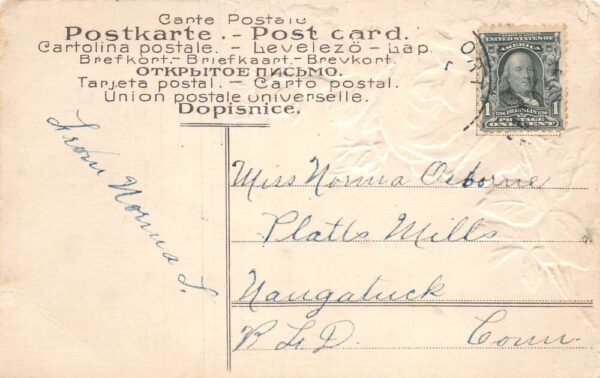 Carte Postale
Postkarte.- Post card.
Cartolina postale. - Levelező - Lap.
Brefkort.- Briefkaart.- Brevkort.
ОТКРЫТОЕ ПИСЬМО.
Tarjeta postal. - Carto postal.
Union postale universelle.
Dopisnice.
UNITED STATES OF
AMERICA
1 FRANKLIN 1
POSTAGE
ONE CENT
From Norma L.
Miss Norma Osborne
Platts Mills
Naugatuck
R.F.D. Conn.